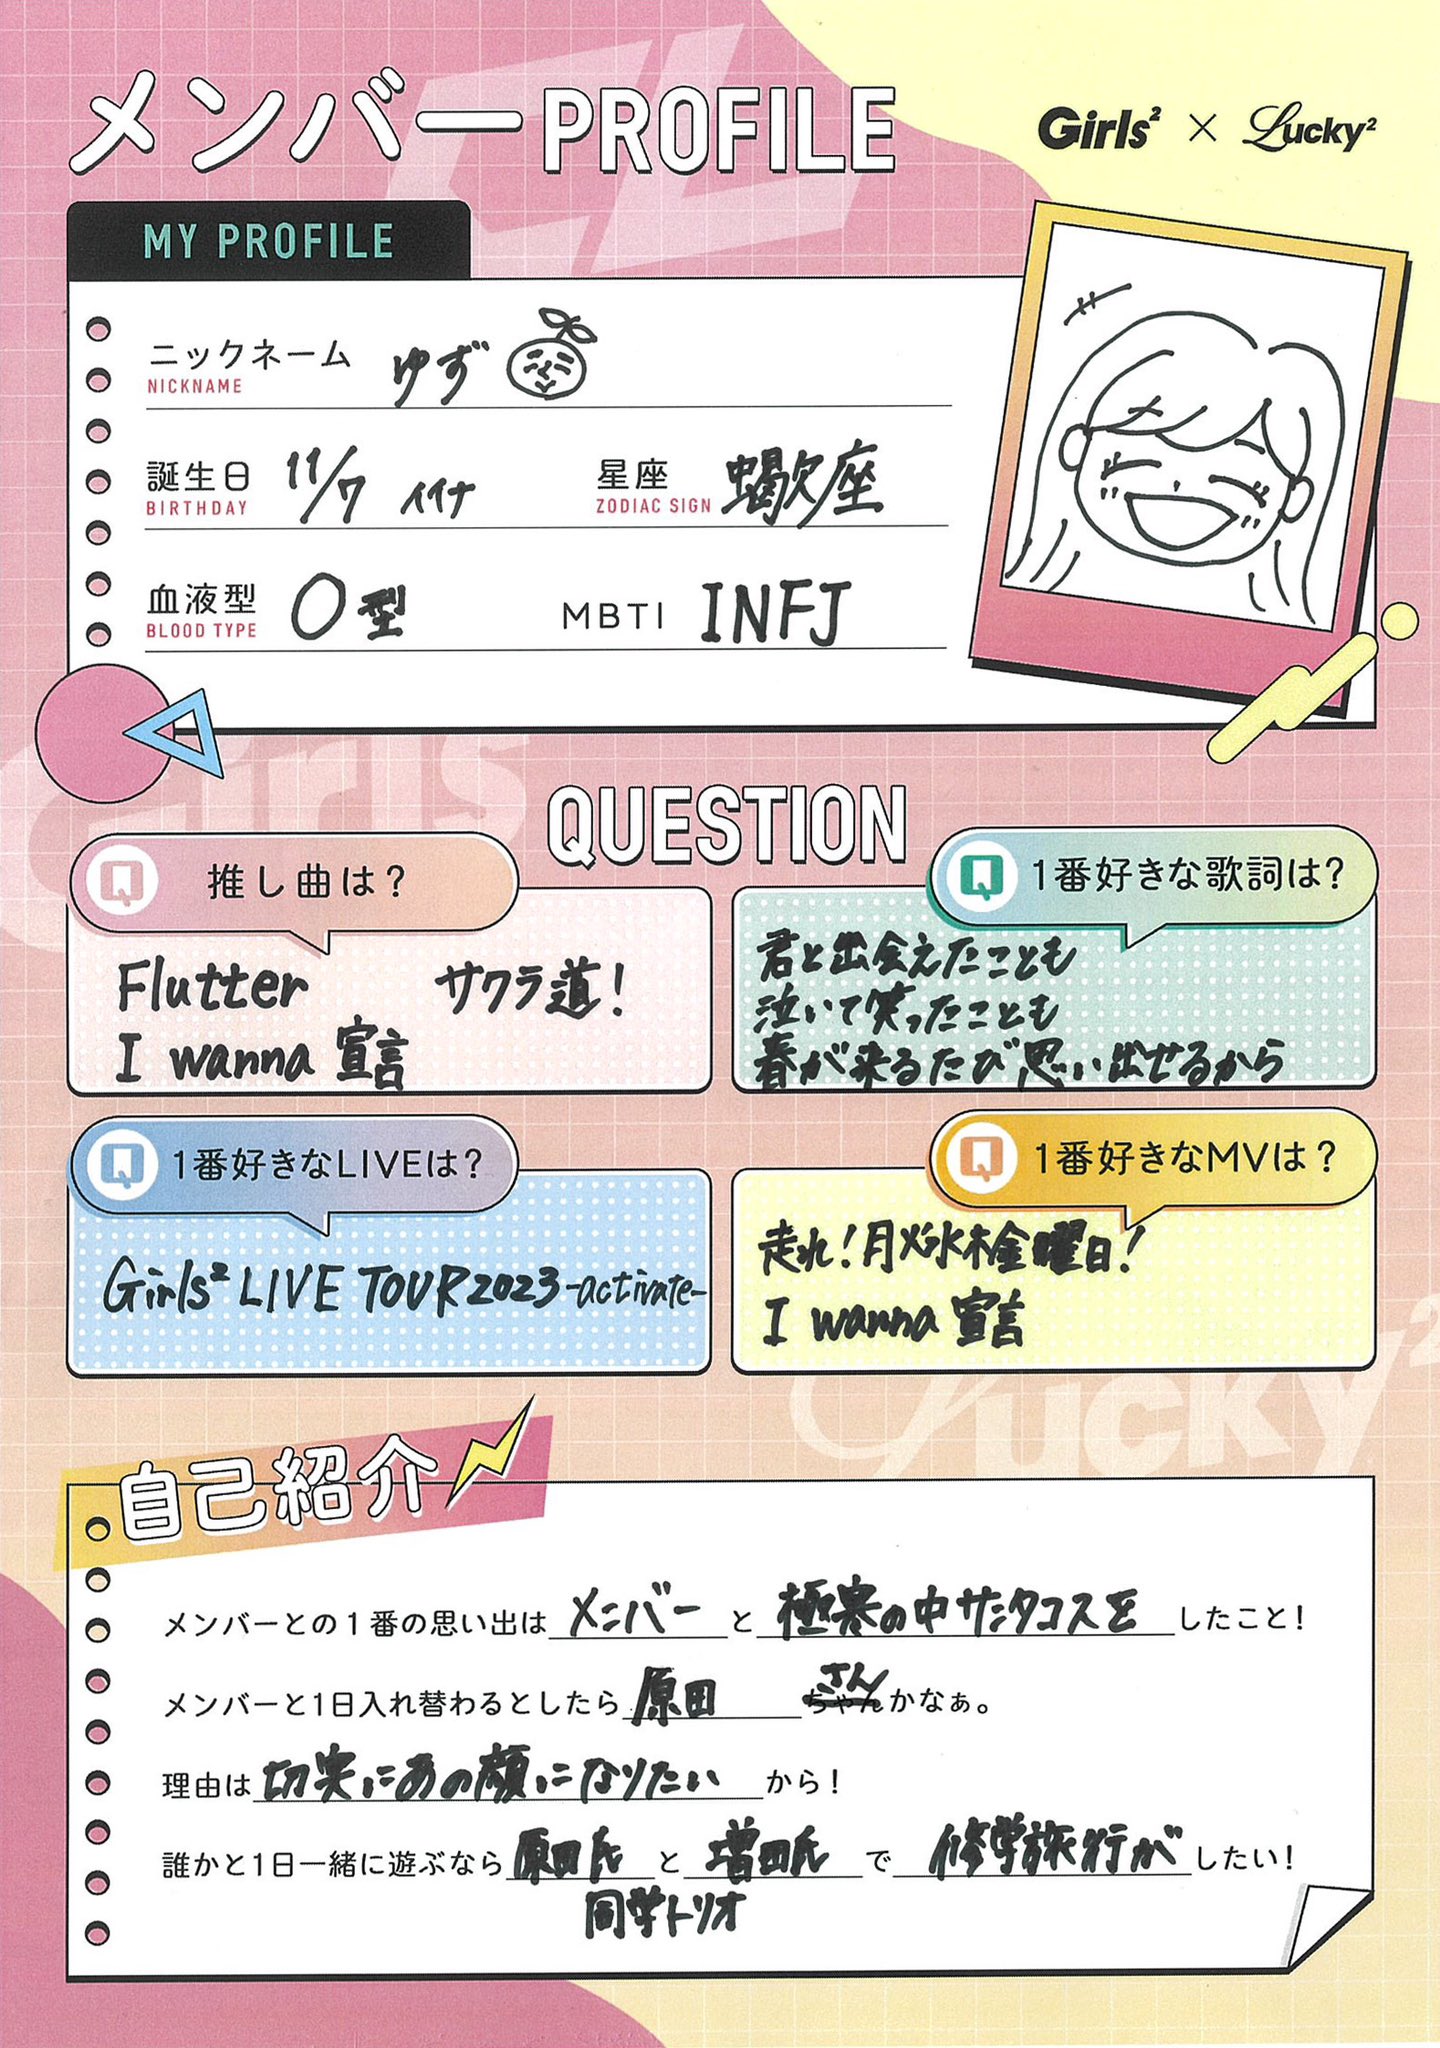 メンバーPROFILE
Girls² × Lucky²
MY PROFILE
ニックネーム ゆず
NICKNAME
誕生日 11/7 イイナ 星座 蝎歇座
BIRTHDAY ZODIAC SIGN
血液型 O型 MBTI INFJ
BLOOD TYPE
Girls
QUESTION
Q 推し曲は?
Flutter サクラ道!
I wanna 宣言
Q 1番好きな歌詞は?
君と出会えたことも
泣いて笑ったことも
春が来るたび思い出せるから
Q 1番好きなLIVEは?
Girls² LIVE TOUR 2023 -activate-
Q 1番好きなMVは?
走れ!月火水木金曜日!
I wanna 宣言
Lucky²
自己紹介
メンバーとの1番の思い出はメンバーと極寒の中サンタコスをしたこと!
メンバーと1日入れ替わるとしたら原田ちゃんさんかなぁ。
理由は切実にあの顔になりたいから!
誰かと1日一緒に遊ぶなら原田氏と増田氏で修学旅行がしたい!
同学トリオ